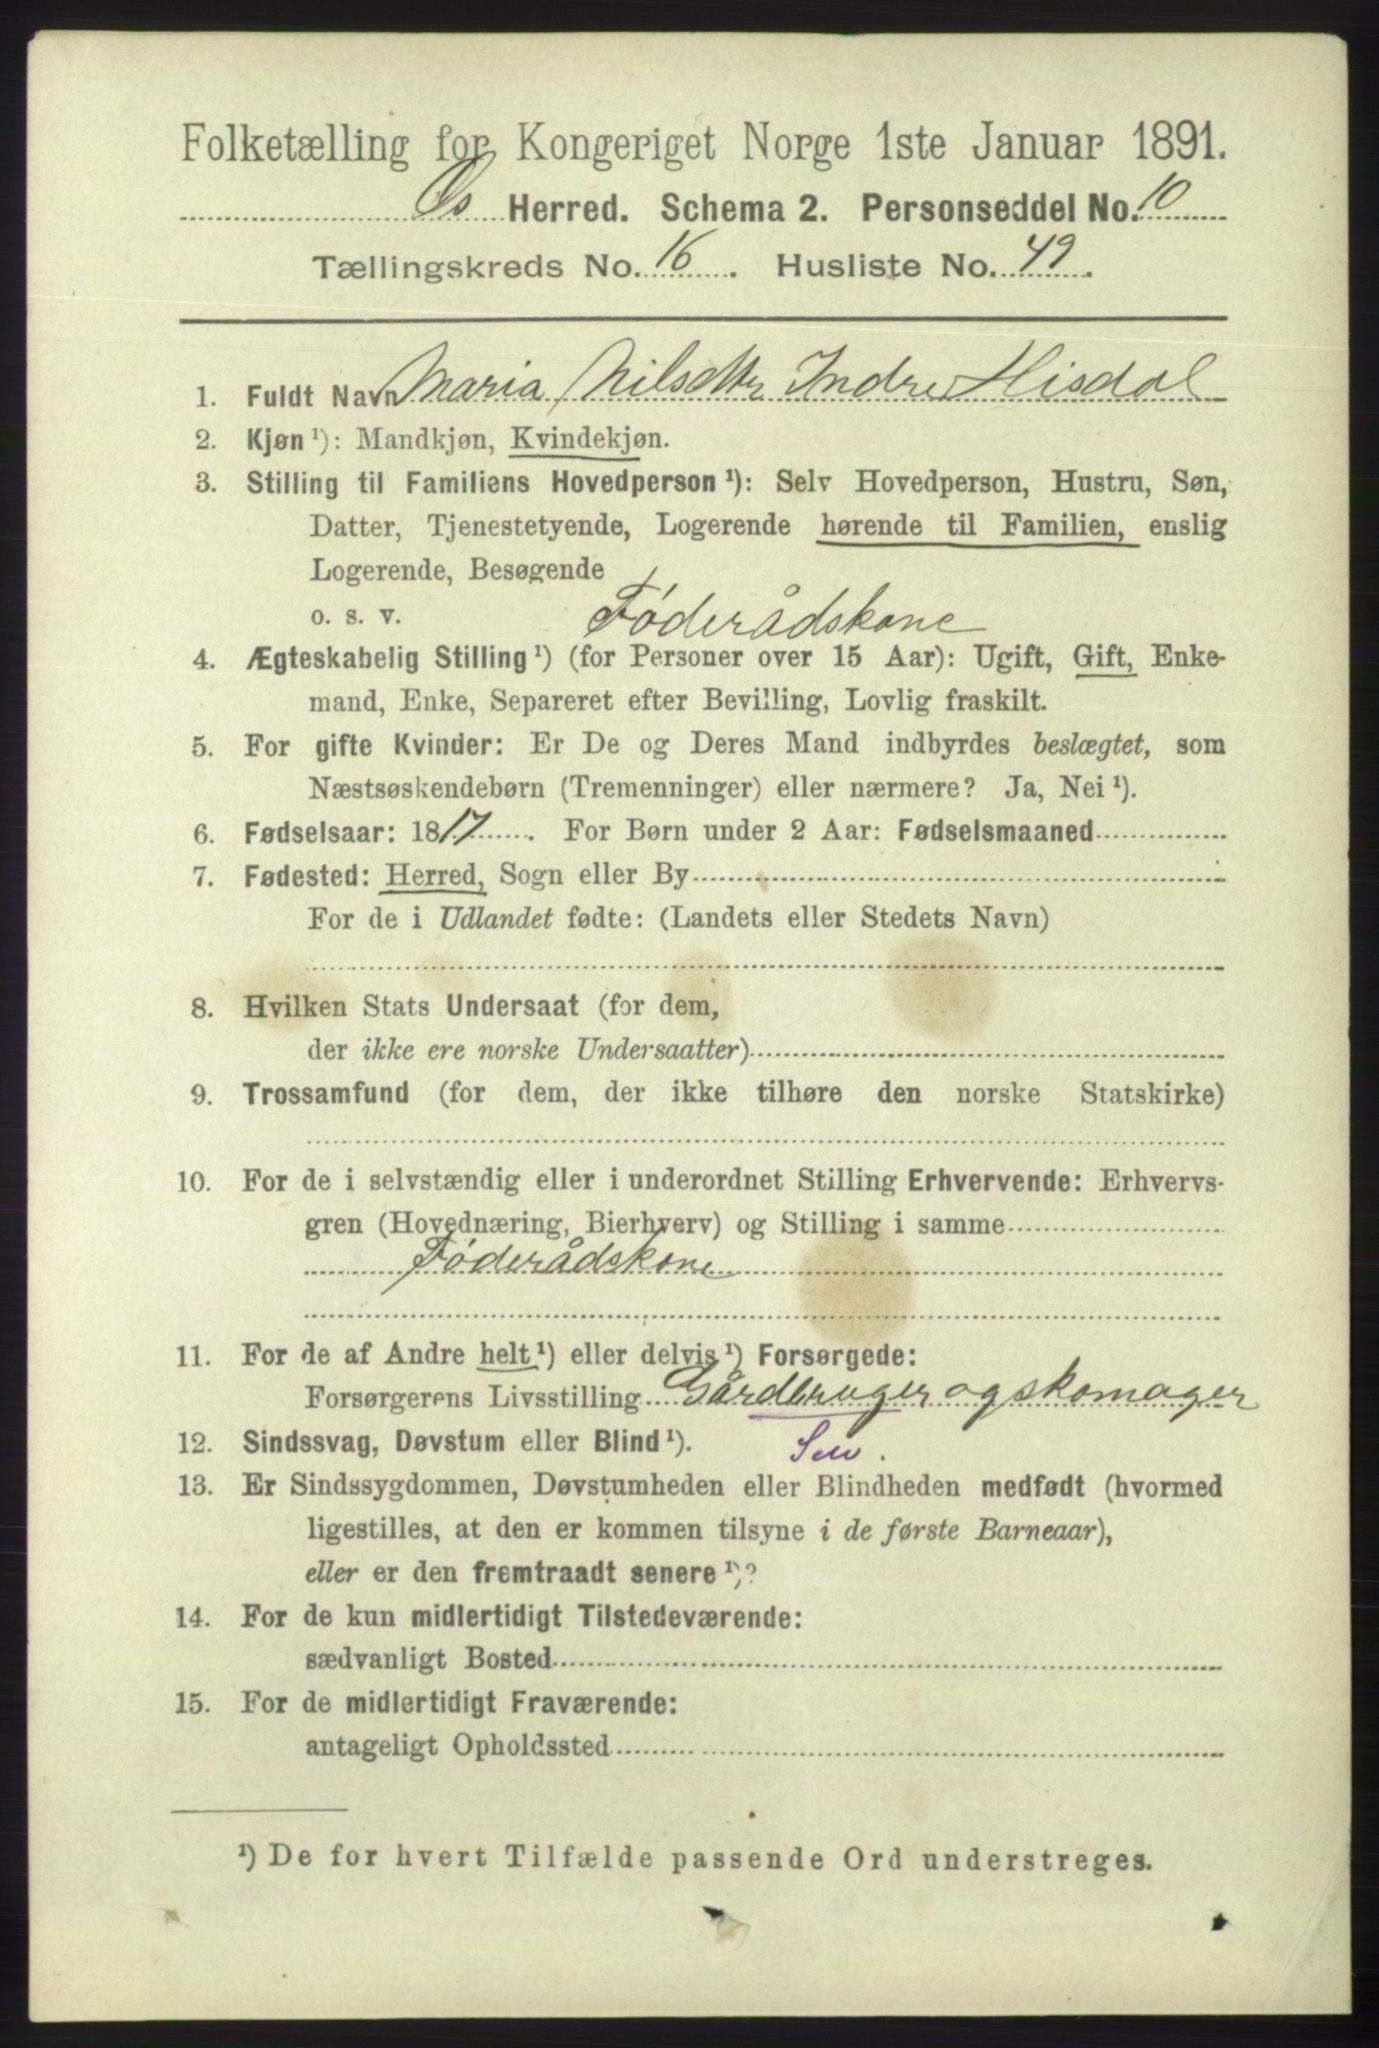 Folketælling for Kongeriget Norge 1ste Januar 1891.
Os Herred. Schema 2. Personseddel No. 10
Tællingskreds No. 16. Husliste No. 49.
1. Fuldt Navn Maria Nilsdttr Indre Hisdal
2. Kjøn ¹): Mandkjøn, Kvindekjøn.
3. Stilling til Familiens Hovedperson ¹): Selv Hovedperson, Hustru, Søn,
Datter, Tjenestetyende, Logerende hørende til Familien, enslig
Logerende, Besøgende
o. s. v. Føderådskone
4. Ægteskabelig Stilling ¹) (for Personer over 15 Aar): Ugift, Gift, Enke-
mand, Enke, Separeret efter Bevilling, Lovlig fraskilt.
5. For gifte Kvinder: Er De og Deres Mand indbyrdes beslægtet, som
Næstsøskendebørn (Tremenninger) eller nærmere? Ja, Nei ¹).
6. Fødselsaar: 1817. For Børn under 2 Aar: Fødselsmaaned
7. Fødested: Herred, Sogn eller By
For de i Udlandet fødte: (Landets eller Stedets Navn)
8. Hvilken Stats Undersaat (for dem,
der ikke ere norske Undersaatter)
9. Trossamfund (for dem, der ikke tilhøre den norske Statskirke)
10. For de i selvstændig eller i underordnet Stilling Erhvervende: Erhvervs-
gren (Hovednæring, Bierhverv) og Stilling i samme
Føderådskone
11. For de af Andre helt ¹) eller delvis ¹) Forsørgede:
Forsørgerens Livsstilling Gårdbruger og skomager
12. Sindssvag, Døvstum eller Blind ¹).
13. Er Sindssygdommen, Døvstumheden eller Blindheden medfødt (hvormed
ligestilles, at den er kommen tilsyne i de første Barneaar),
eller er den fremtraadt senere ¹)?
14. For de kun midlertidigt Tilstedeværende:
sædvanligt Bosted
15. For de midlertidigt Fraværende:
antageligt Opholdssted
¹) De for hvert Tilfælde passende Ord understreges.